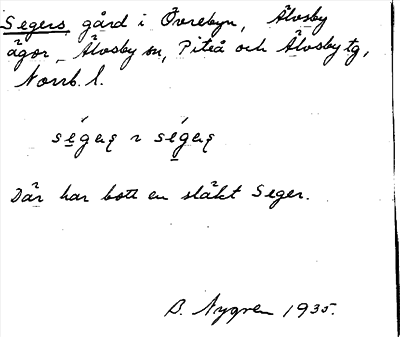 Segers gård i Övrebyn, Älvsby
ägor, Älvsby sn, Piteå och Älvsby tg,
Norrb. l.
Där har bott en släkt Seger.
B. Nygren 1935.